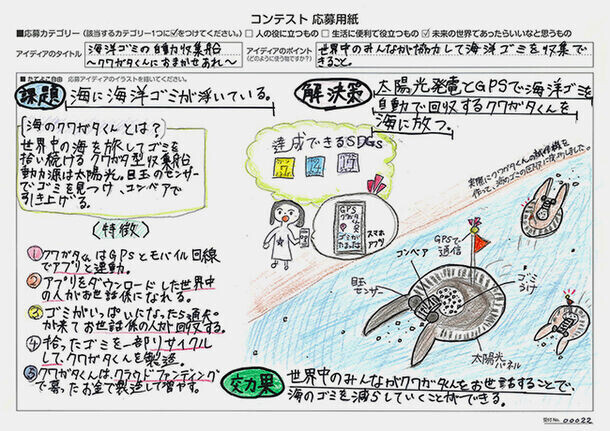 コンテスト 応募用紙
■応募カテゴリー(該当するカテゴリー1つに☑をつけてください。) □人の役に立つもの □生活に便利で役立つもの ☑未来の世界であったらいいなと思うもの
アイディアのタイトル
海洋ゴミの自動収集船
～クワガタくんにおまかせあれ～
アイディアのポイント
(どのように使う物ですか?)
世界中のみんなが協力して海洋ゴミを収集で
きること。
■たてよこ自由 応募アイディアのイラストを描いてください。
課題
海に海洋ゴミが浮いている。
解決策
太陽光発電とGPSで海洋ゴミを
自動で回収するクワガタくんを
海に放つ。
[海のクワガタくんとは?]
世界中の海を旅してゴミを
拾い続けるクワガタ型収集船
動力源は太陽光。目玉のセンサー
でゴミを見つけ、コンベアで
引き上げる。
達成できるSDGs
7
14
17
(特徴)
① クワガタくんはGPSとモバイル回線
でアプリと連動。
② アプリをダウンロードした世界中
の人がお世話係になれる。
③ ゴミがいっぱいになったら通知
が来てお世話係の人が回収する。
④ 拾ったゴミを一部リサイクル
して、クワガタくんを製造
⑤ クワガタくんは、クラウドファンディング
で募ったお金で製造して増やす。
GPS
クワガタくん
ゴミが
スマホ
アプリ
実際にクワガタくんの試作機を
作って、海のゴミの回収に成功しました。
GPSで
通信
コンベア
目玉
センサー
ゴミ
うけ
太陽光
パネル
効果
世界中のみんながクワガタくんをお世話することで、
海のゴミを減らしていくことができる。
受付No. 00022